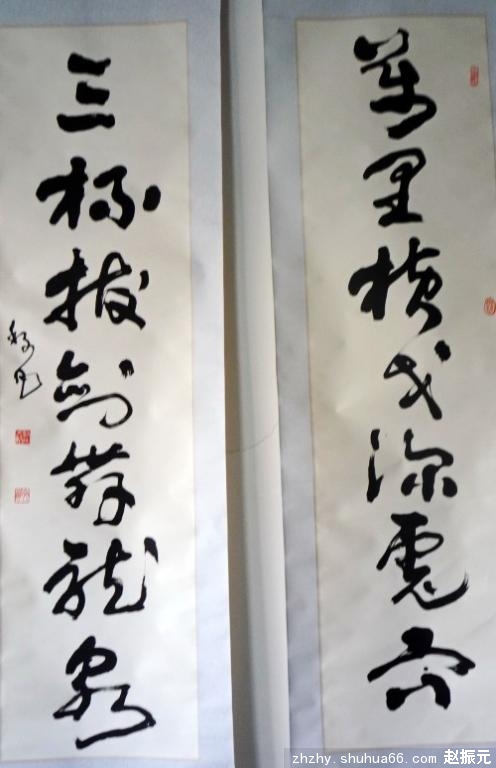 萬里横戈探虎穴
三杯拔劍舞龍泉
zhzhy.shuhua66.com 赵振元